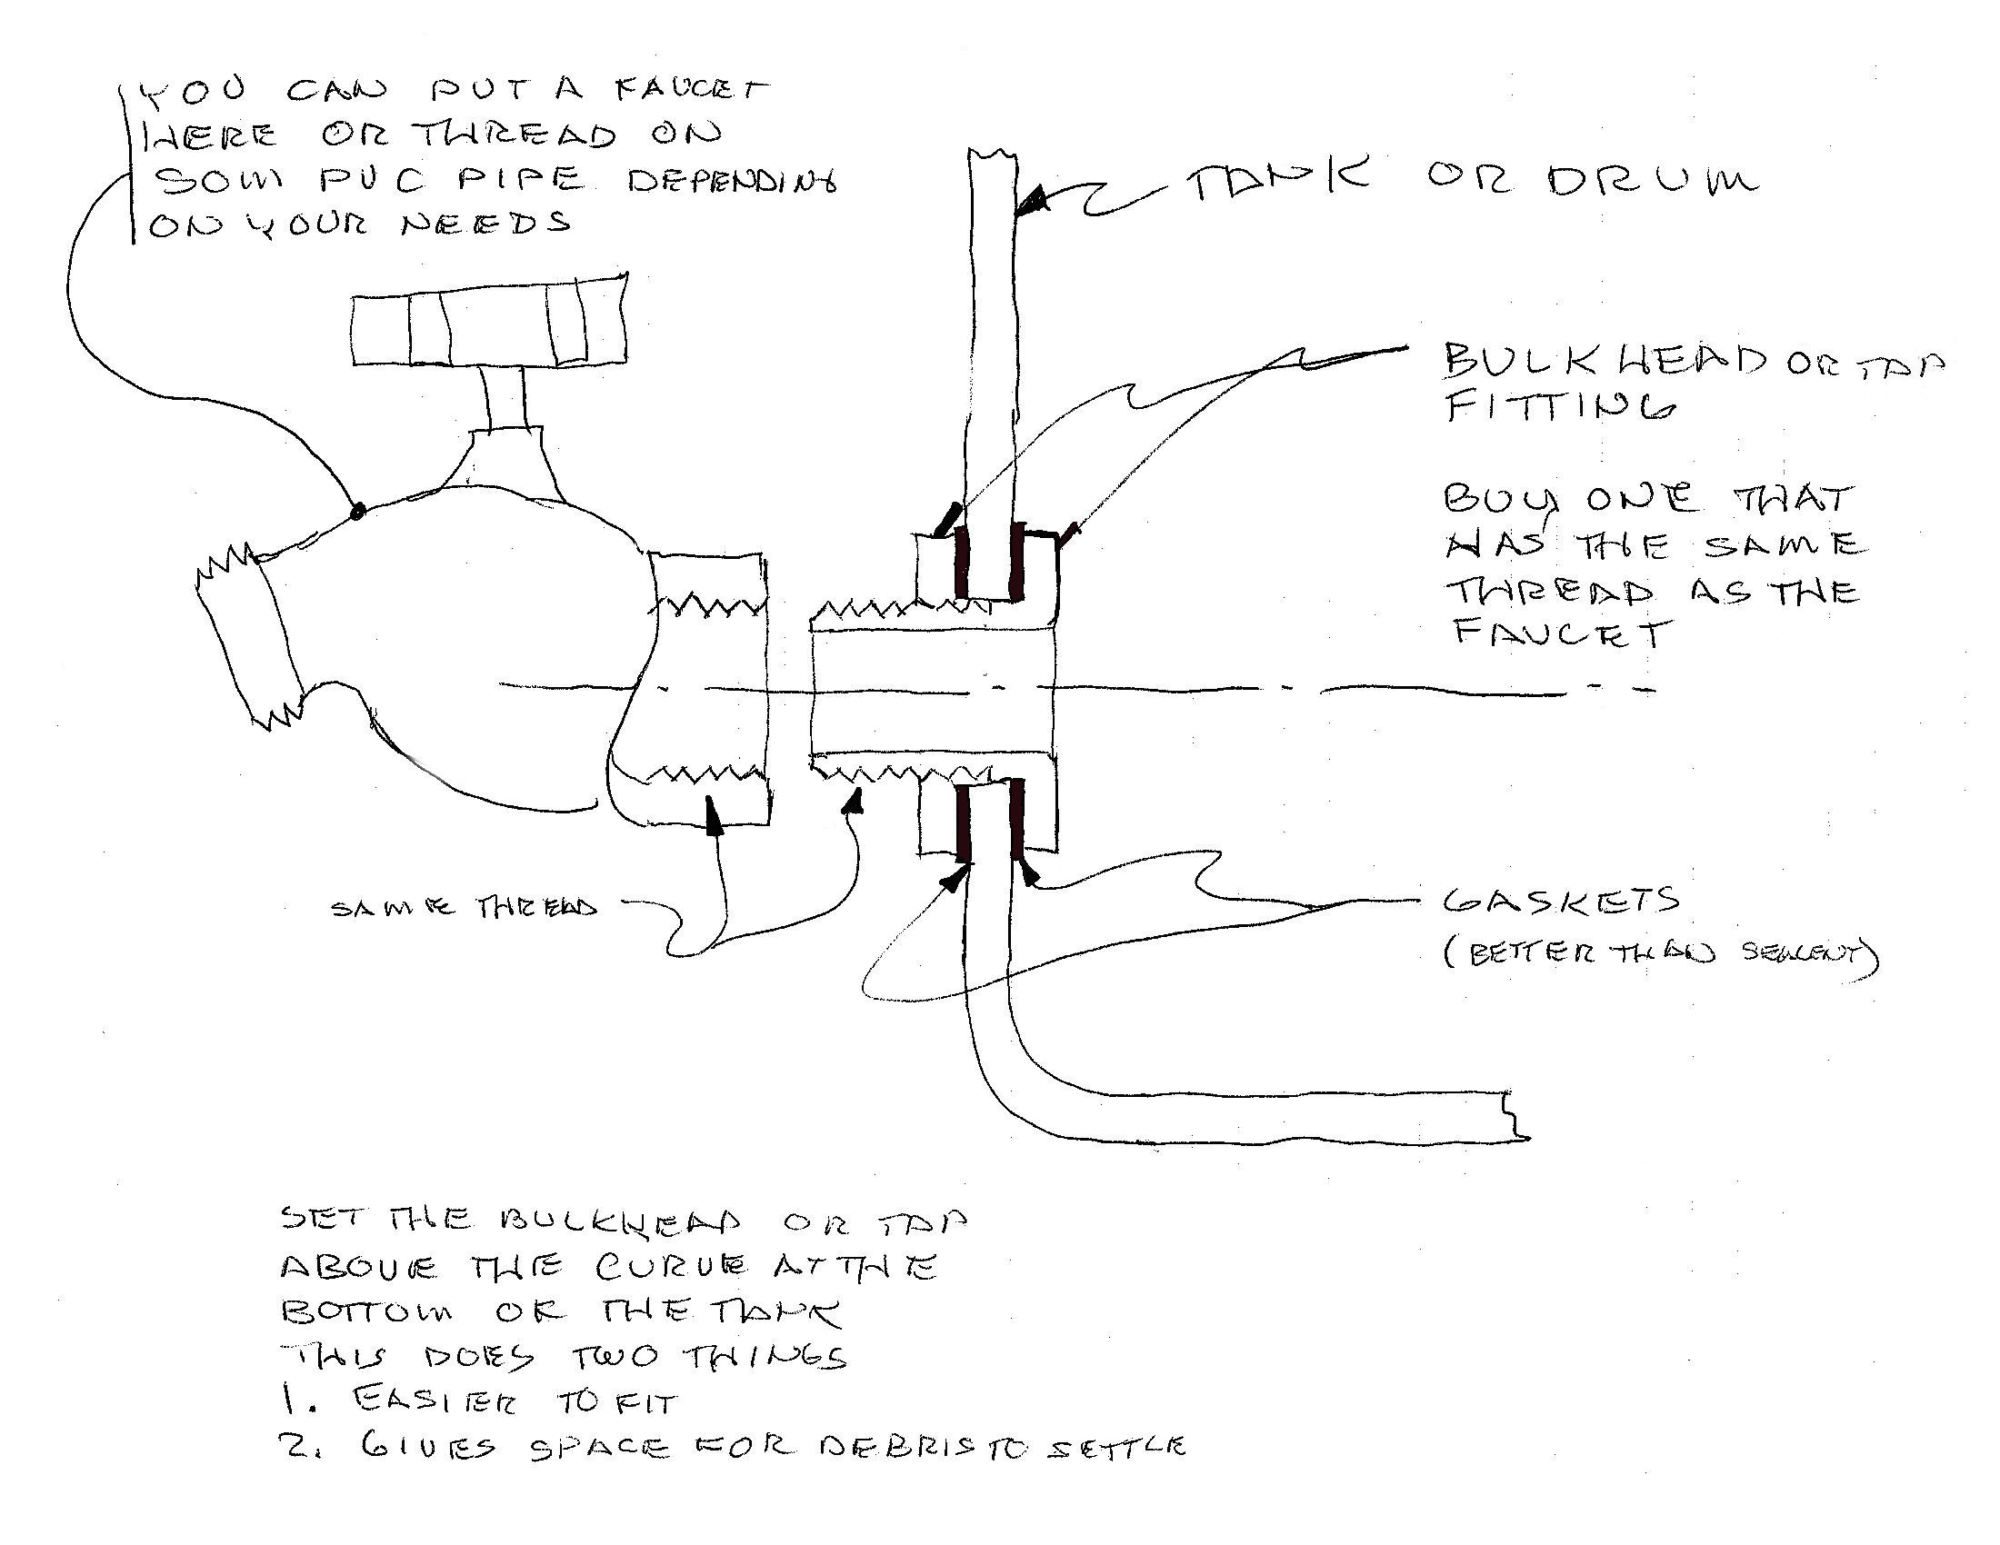 YOU CAN PUT A FAUCET
HERE OR THREAD ON
SOM PVC PIPE DEPENDING
ON YOUR NEEDS
TANK OR DRUM
BULKHEAD OR TAP
FITTING
BUY ONE THAT
HAS THE SAME
THREAD AS THE
FAUCET
SAME THREAD
GASKETS
(BETTER THAN SEALENT)
SET THE BULKHEAD OR TAP
ABOVE THE CURVE AT THE
BOTTOM OR THE TANK
THIS DOES TWO THINGS
1. EASIER TO FIT
2. GIVES SPACE FOR DEBRIS TO SETTLE